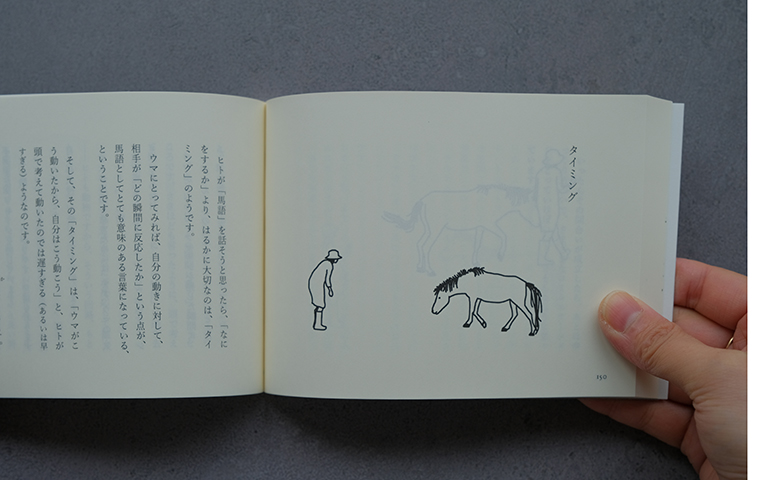 タイミング
150
ヒトが「馬語」を話そうと思ったら、「なに
をするか」より、はるかに大切なのは、「タイ
ミング」のようです。
ウマにとってみれば、自分の動きに対して、
相手が「どの瞬間に反応したか」という点が、
馬語としてとても意味のある言葉になっている、
ということです。
そして、その「タイミング」は、「ウマがこ
う動いたから、自分はこう動こう」と、ヒトが
頭で考えて動いたのでは遅すぎる（あるいは早
すぎる）ようなのです。